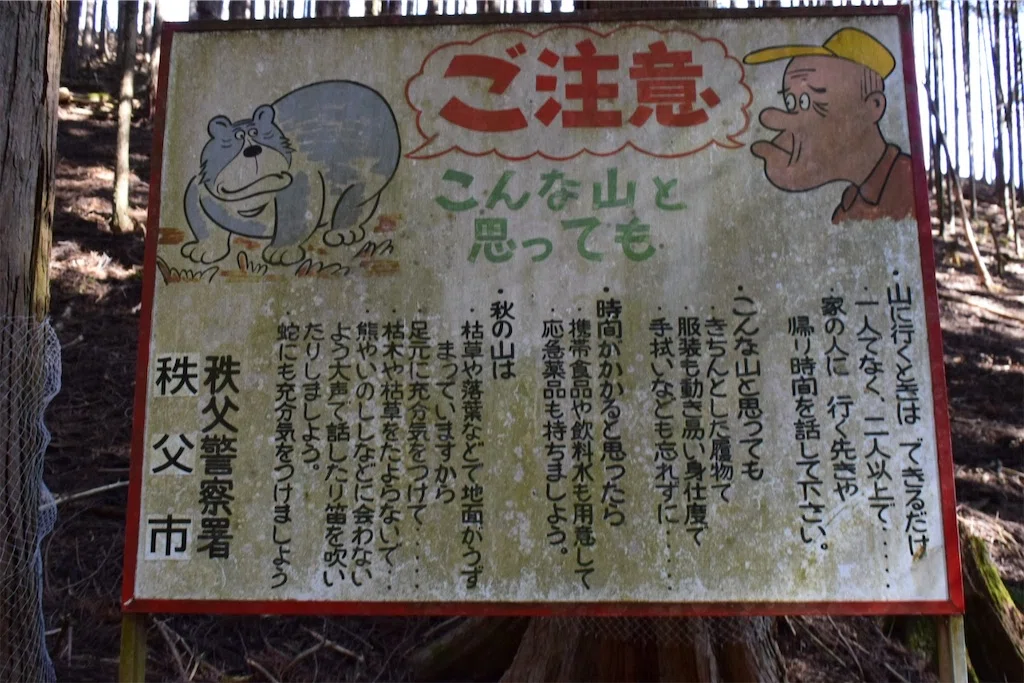 ご注意
こんな山と
思っても
・山に行くときは できるだけ
一人でなく、二人以上で‥‥‥
家の人に 行く先きや
帰り時間を話して下さい。
・こんな山と思っても
・きちんとした履物で
服装も動き易い身仕度で
手拭いなども忘れずに‥‥‥
・時間がかかると思ったら
・携帯食品や飲料水も用意して
応急薬品も持ちましょう。
・秋の山は
・枯草や落葉などで地面がうず
まっていますから
足元に充分気をつけて‥‥‥
・枯木や枯草をたよらないで‥‥
・熊やいのししなどに会わない
よう大声で話したり笛を吹い
たりしましょう。
・蛇にも充分気をつけましょう
秩父警察署
秩父市